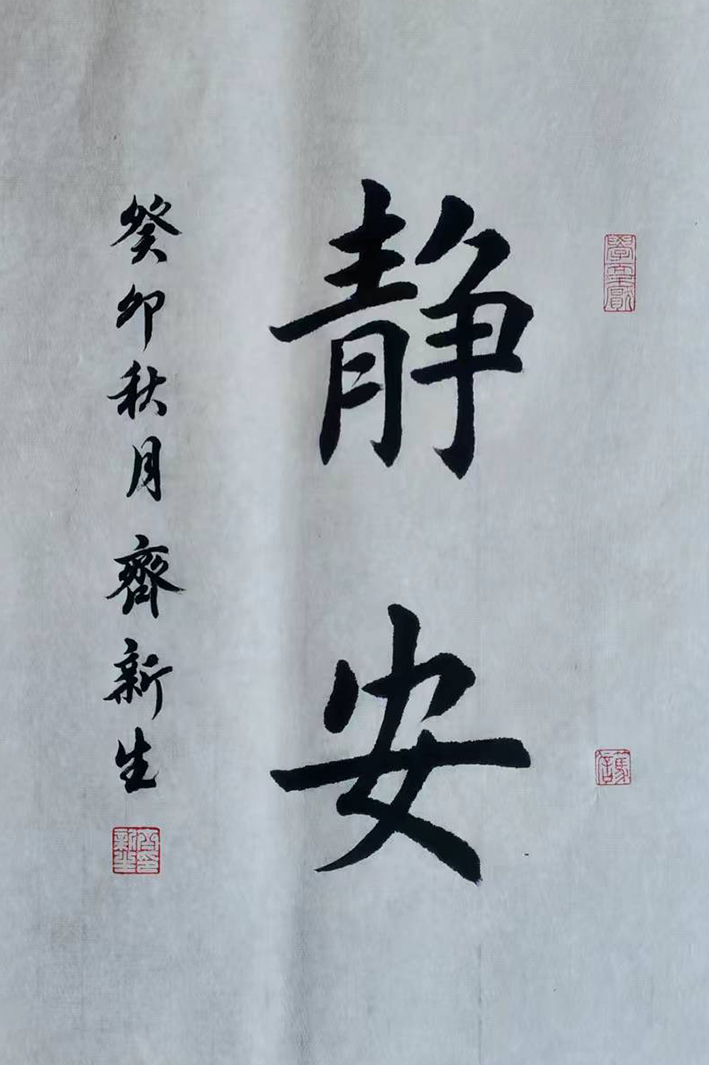 静安
癸卯秋月 齊新生